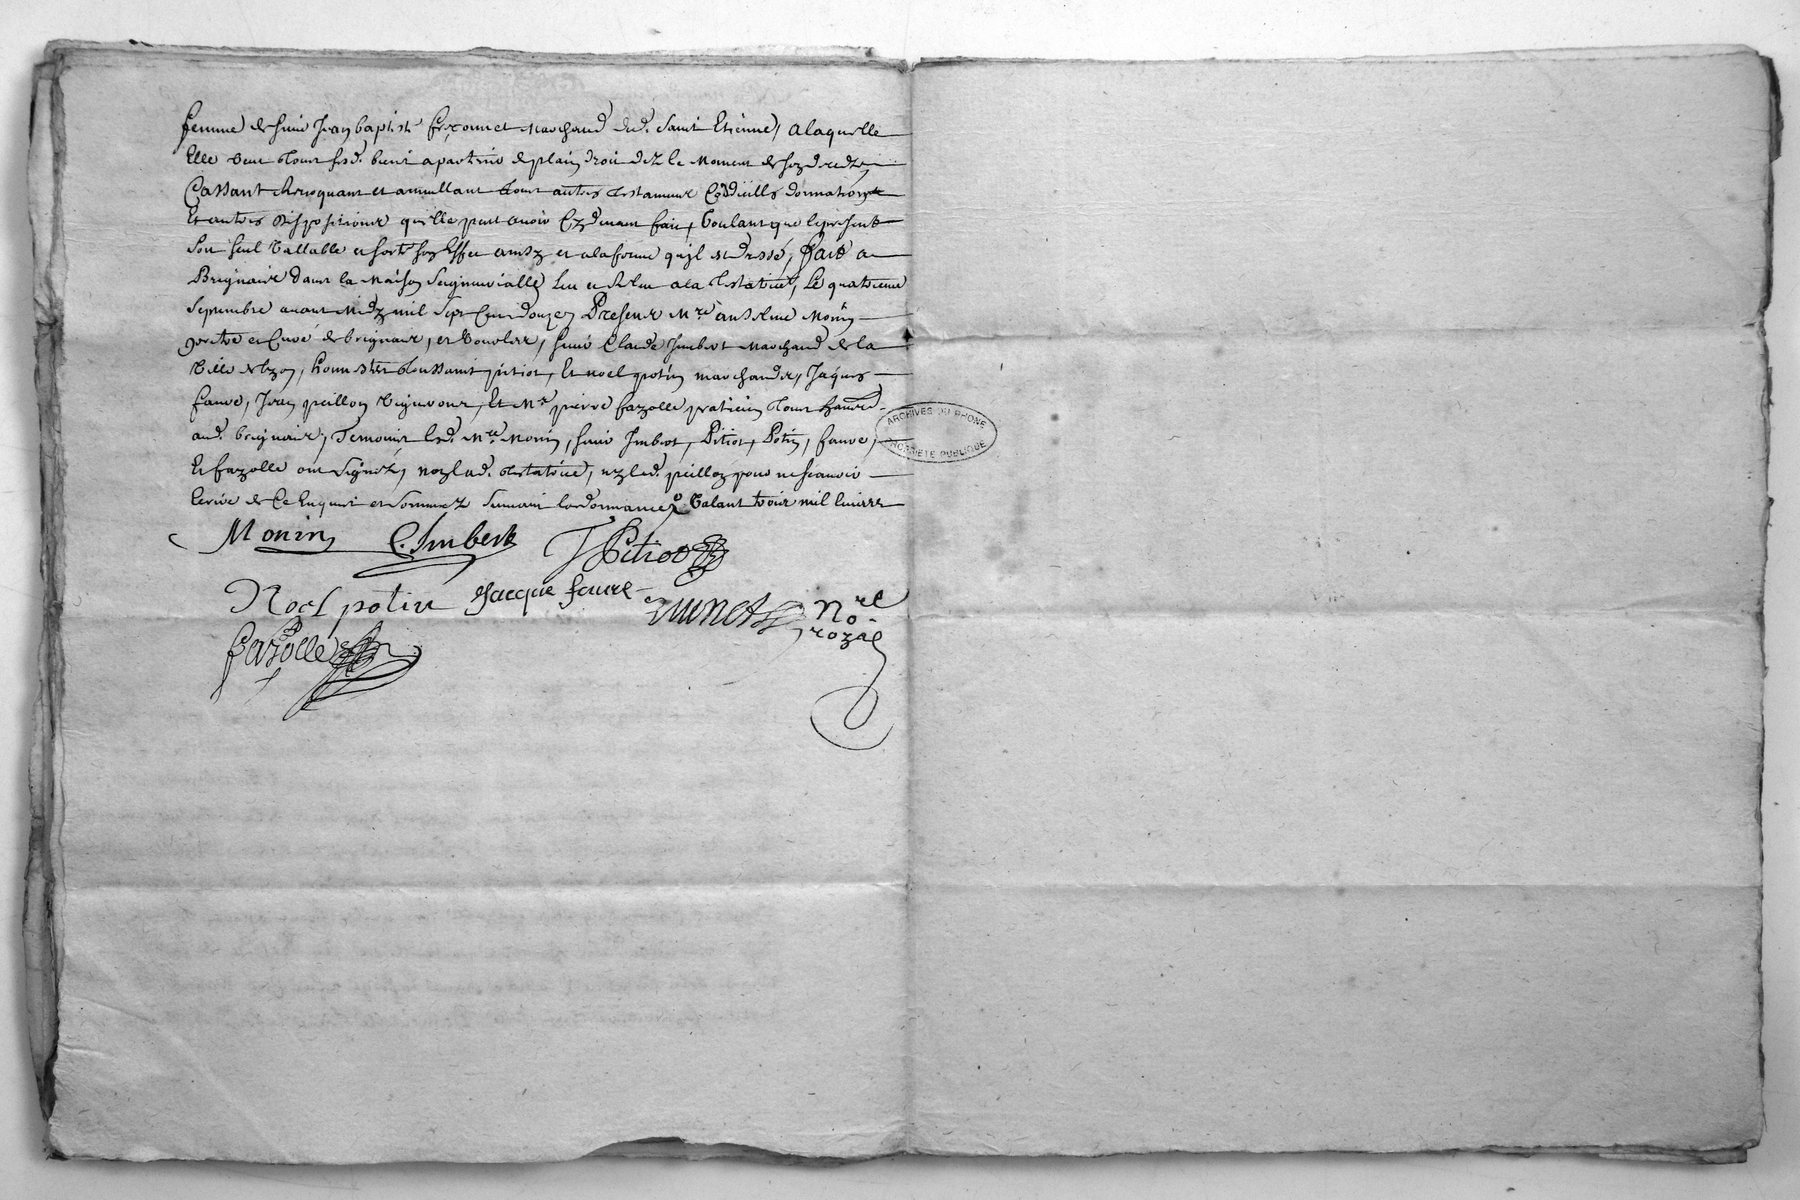 femme de sieur Jean baptiste frecomet Marchand dud. Saint Etienne, a laquelle
Elle veut tous sesd. biens apartenir de plain droit dez le Moment de son dedz
Cassant Revoquant et annullant tous autres testamens Codicills donnations
Et autres dispositions qu'elle peut avoir Cy devant fait, voulant que le present
soit seul vallable et sorte son Effet ainsy et a la forme qu'il est dressé, fait a
Brignais dans la Maison Seigneurialle Leu et Releu a la testatrice, Le quatrieme
Septembre avant Midy mil Sept Cens douze Presens Mre anselme Monin
prestre et Curé de brignais, et vourles, sieur Claude Imbert Marchand de la
ville de lyon, honnestes toussaint pitiot, Et noel potin marchands, Jaques
faure, Jean peillon vigneron, Et Mr pierre fazolle praticien tous
aud. brignais, Temoins Lesd. Mre Monin, sieur Imbert, Pitiot, Potin, faure,
Et fazolle ont signéz, non lad. testatrice, ny led. peillon pour ne scavoir
Ecrire de Ce Enquis et sommez suivant l'ordonnance, valant trois mil livres
Monin C. Imbert T Pitiot
Noel potin Jacque faure
fazolle
No.re
royal
ARCHIVES DU RHONE
PROPRIETE PUBLIQUE